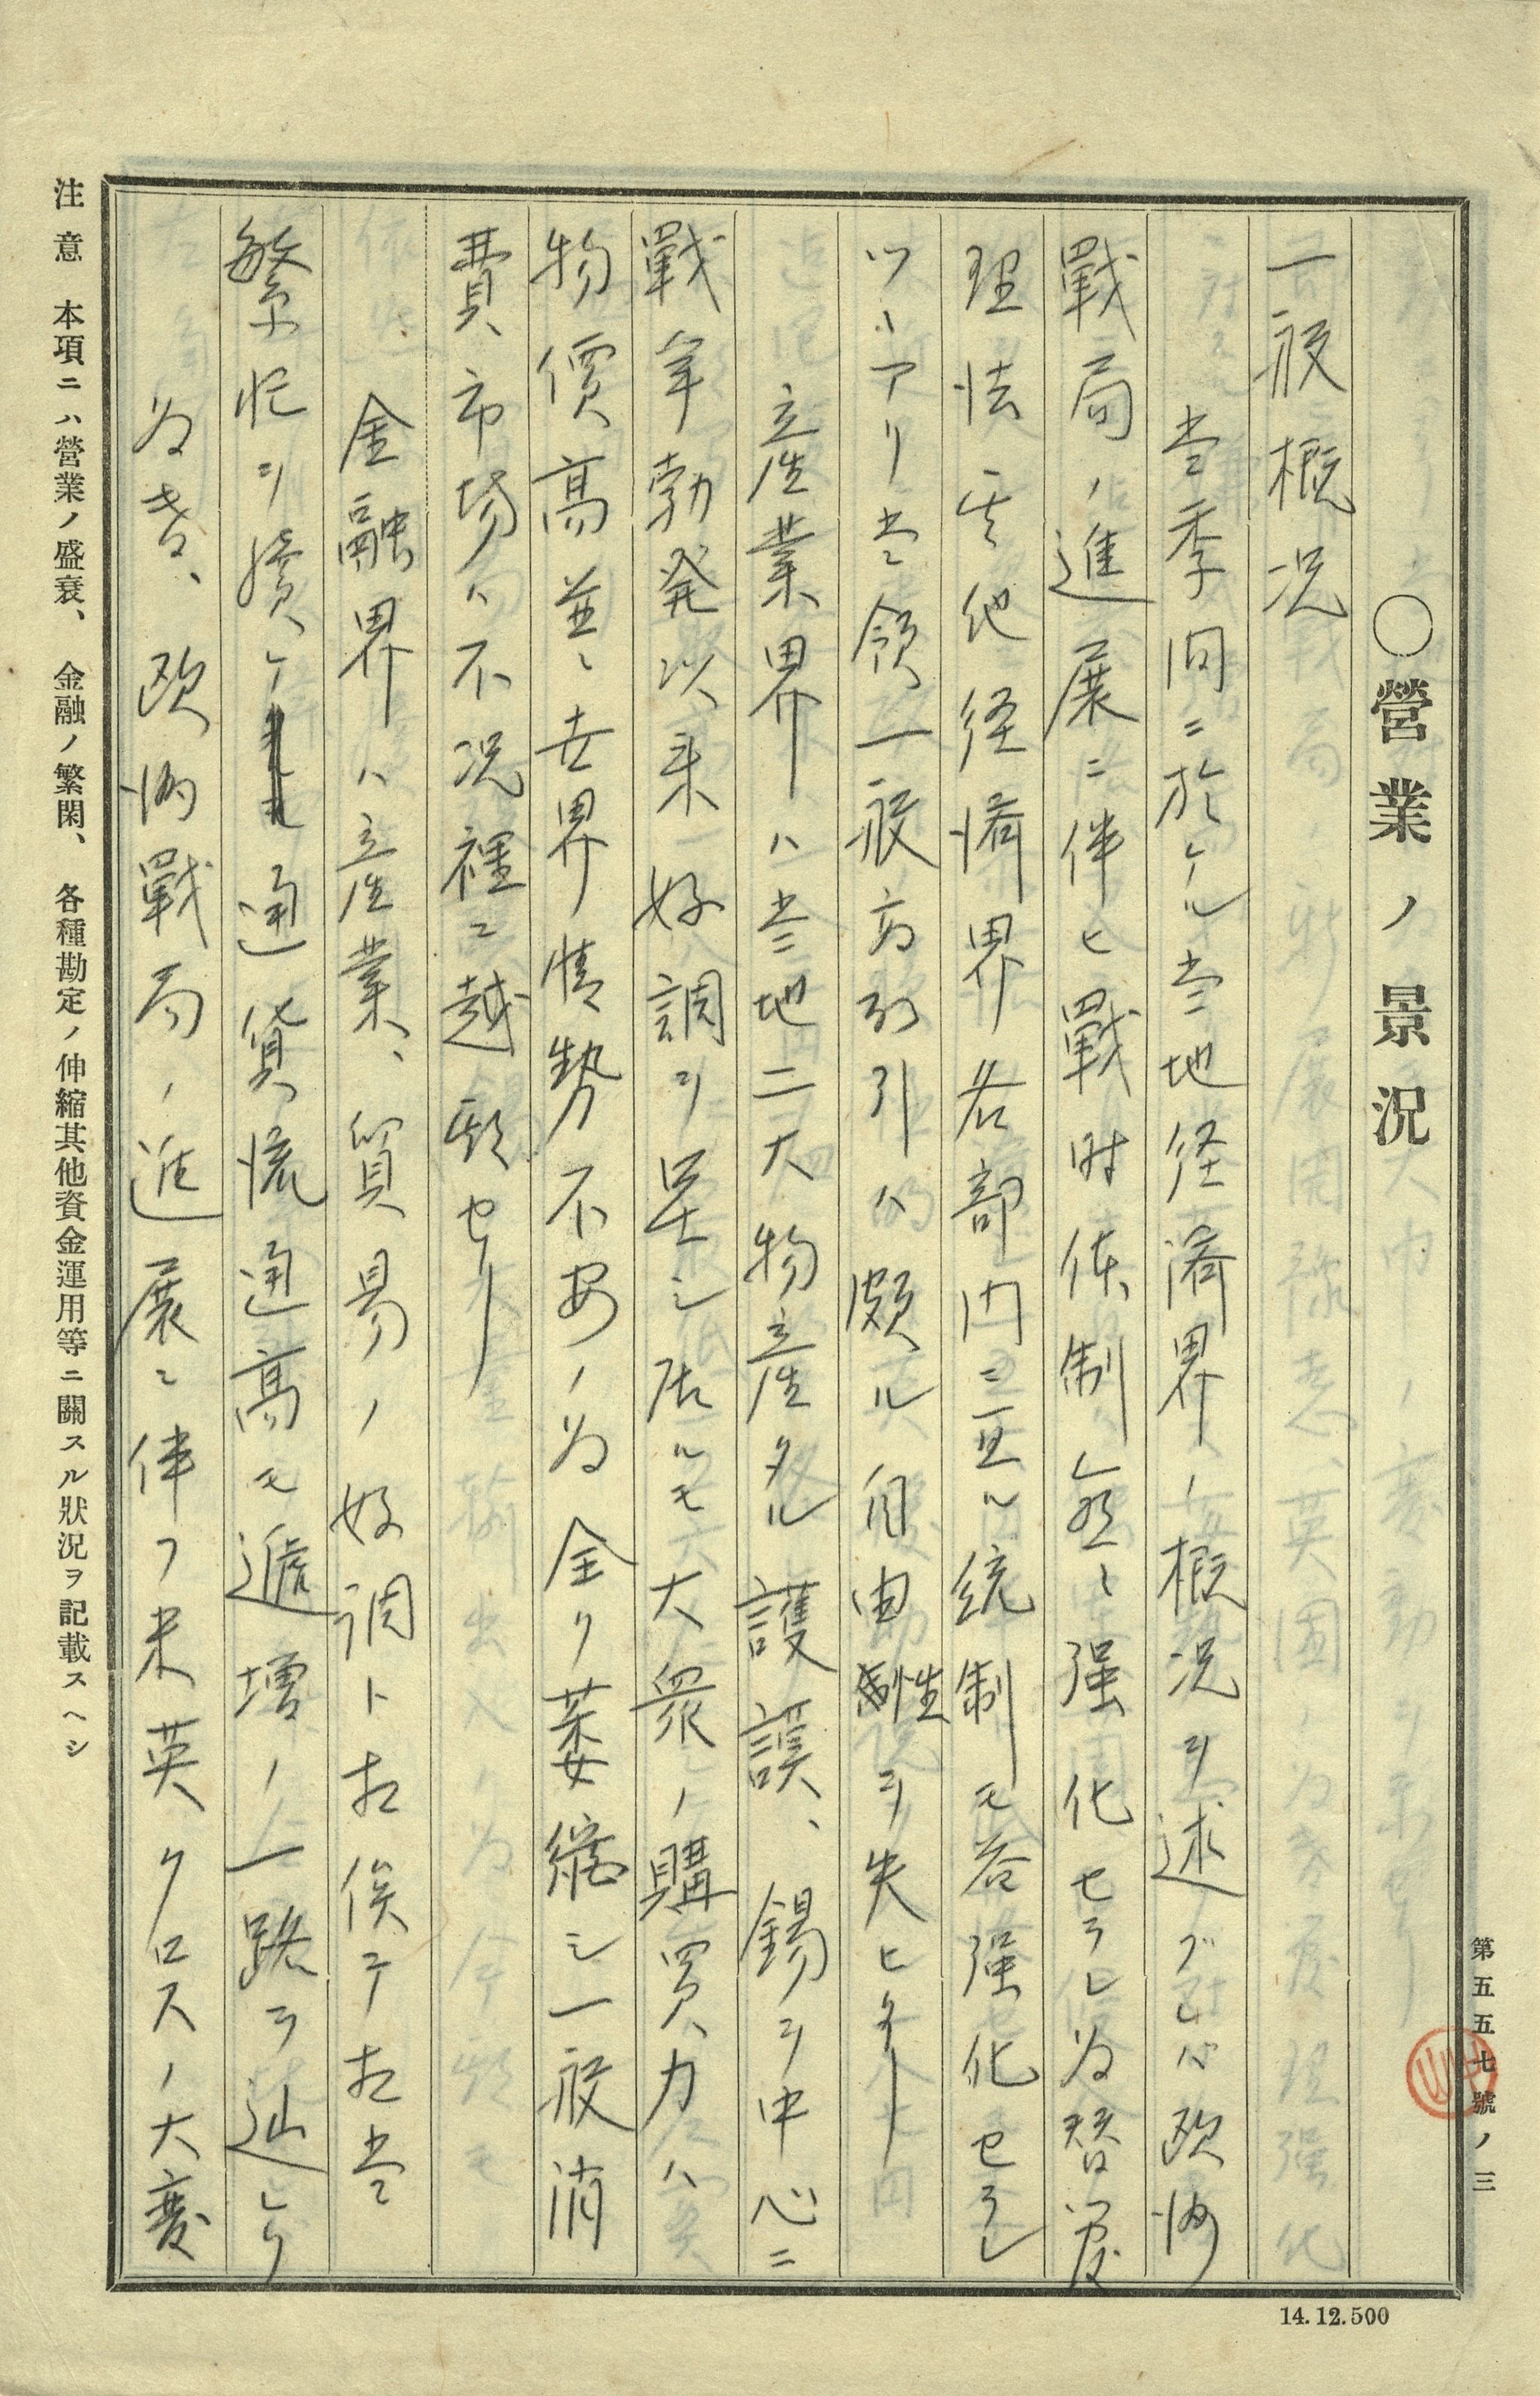 第五五七號ノ三
〇營業ノ景況
一般概況
当季间ニ於ケル当地経済界ノ概况ヲ述ブレバ欧洲
戰局ノ進展ニ伴ヒ戰时体制ハ愈々强化セラレ為替管
理法其他経済界各部内ニ亘ル統制モ益强化セラレ
ツヽアリ当領一般商取引ハ頗ル自由性ヲ失ヒタリ
産業界ハ当地二大物産タル護謨、錫ヲ中心ニ
戰争勃発以来好調ヲ呈シ居ルモ大衆ノ購買力ハ
物價高並ニ世界情勢不安ノ為全ク萎縮シ一般消
費市場ハ不况裡ニ越期セリ
金融界ハ産業、貿易ノ好调ト相俟テ相当
繁忙ヲ續ケ通貨流通高モ逓増ノ一路ヲ辿レリ
為替、欧洲戰局ノ進展ニ伴フ米英クロスノ大変
注意 本項ニハ營業ノ盛衰、金融ノ繁閑、各種勘定ノ伸縮其他資金運用等ニ關スル狀況ヲ記載スヘシ
14.12.500